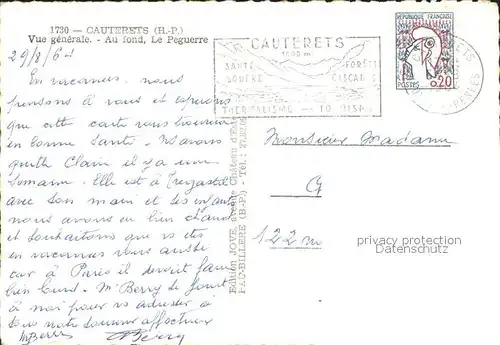 1730 - CAUTERETS (H.-P.)
Vue générale. - Au fond, Le Peguerre
29/8/64
En vacances nous
pensons à vous et espérons
que cette carte vous trouvera
en bonne Santé.
quitté Claire il y a une
Semaine. Elle est à Tregastel
avec son mari et les enfants
nous avons eu bien chaud
et souhaitons que
en vacances vous aussi
car à Paris il devait faire
bien lourd. Mr Berry se joint
à moi pour vous adresser à
tous notre souvenir affectueux
MBerry
Berry
Edition JOVE, avenue Château d'Este
PAU-BILLERE (B.-P.) - Tél.:
CAUTERETS
1000 m.
SANTÉ FORÊTS
SOURCE CASCADES
THERMALISME
REPUBLIQUE FRANÇAISE
POSTES 0,20
CAUTERETS
PYRENEES
Monsieur Madame
G
122 m
privacy protection
Datenschutz